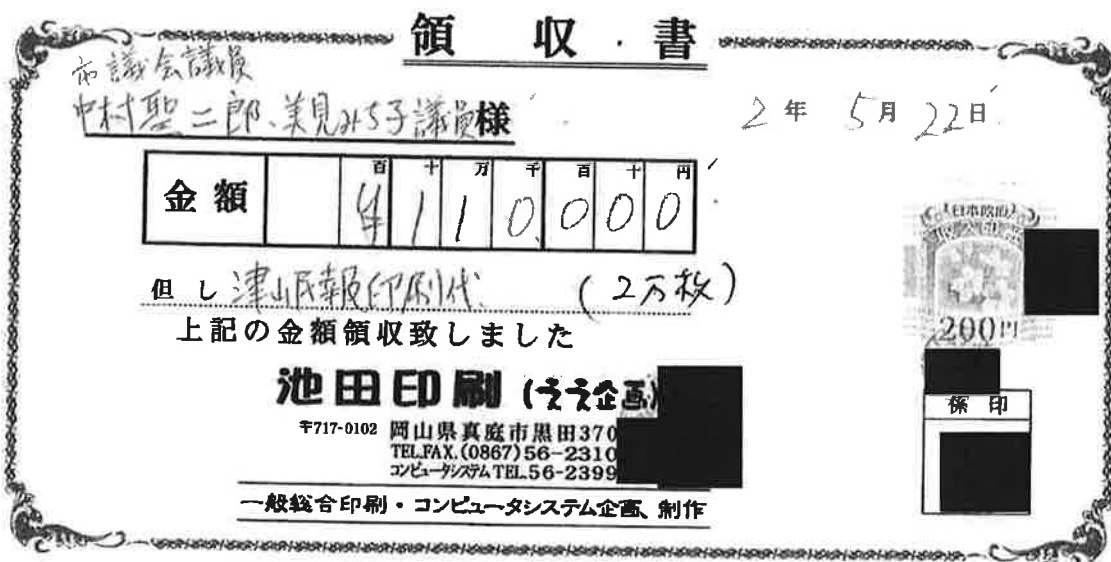 領収書
市議会議員
中村聖二郎、美見みち子議員様
2年 5月 22日
百 十 万 千 百 十 円
金額 ¥110,000
但し 津山民報印刷代 (2万枚)
上記の金額領収致しました
日本政府
200円
池田印刷 (ええ企画)
〒717-0102 岡山県真庭市黒田370
TEL.FAX.(0867)56-2310
コンピュータシステム TEL.56-2399
係印
一般総合印刷・コンピュータシステム企画、制作